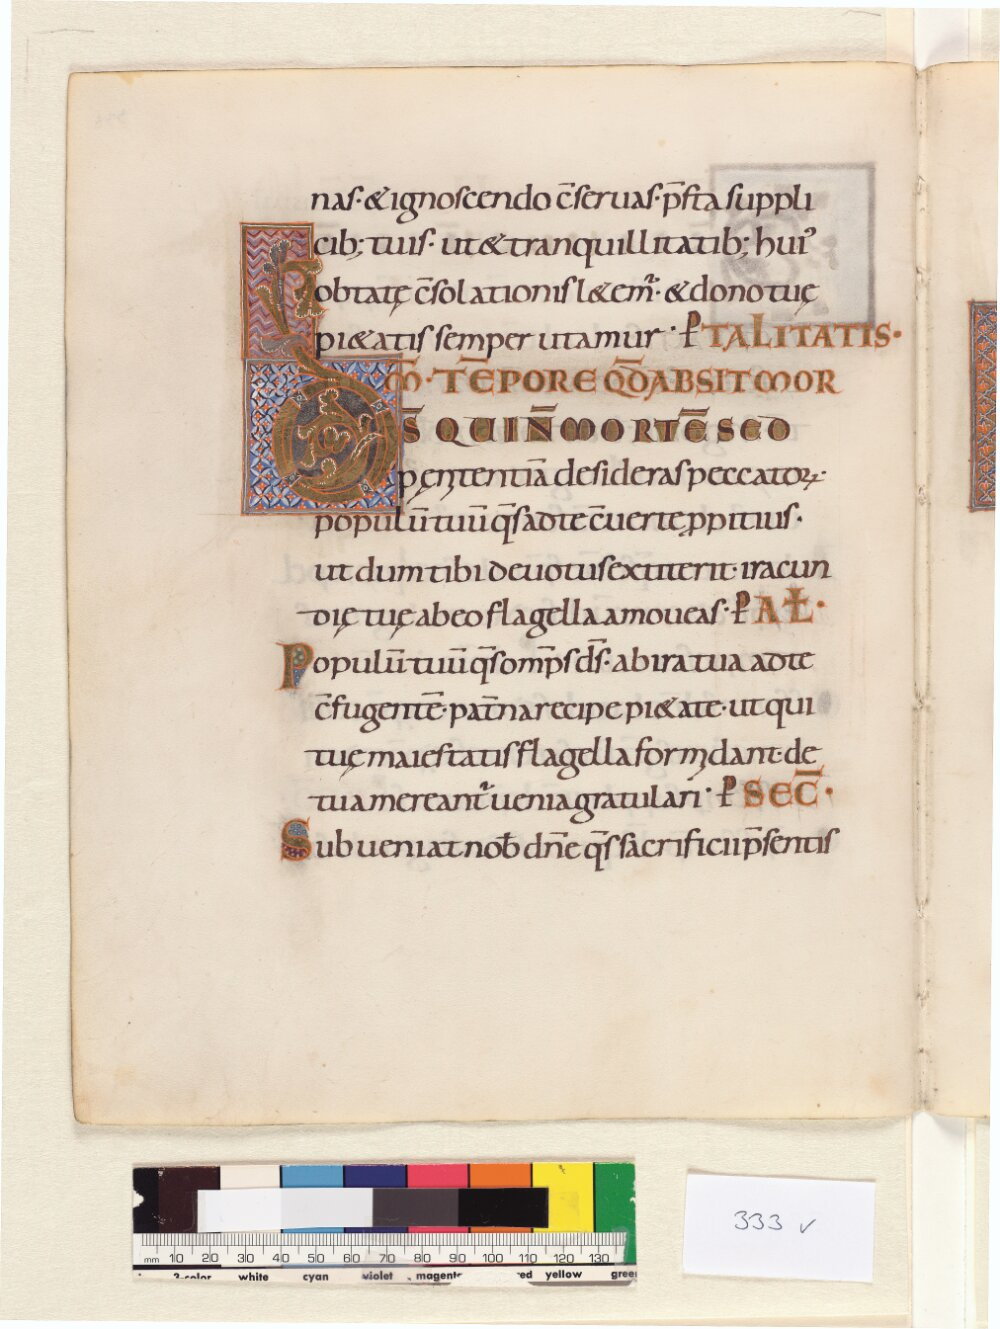 nas·&ignoscendo c̄seruas·p̄sta suppli
cib; tuis· ut&tranquillitatib; hui᾽
obtatę c̄solationis l&em̄·&dono tuę
pi&atis semper utamur· P TALITATIS·
M̄·TĒPORE Q̄D ABSIT MOR
D̄S QUI N̄ MORTĒ SED
pęnitentiā desideras peccatoꝝ·
populū tuū q̄s ad te c̄uerte ꝓpitius·
ut dum tibi deuotus extiterit· iracun
dię tuę ab eo flagella amoueas· P AŁ·
Populū tuū q̄s om̄ps d̄s· ab ira tua ad te
c̄fugentē· pat̄na recipe pi&ate· ut qui
tuę maiestatis flagella formidant· de
tua mereant᾽ uenia gratulari· P SEC̄·
Subueniat nob̄ dn̄e q̄s sacrificii p̄sentis
333 v
mm 10 20 30 40 50 60 70 80 90 100 110 120 130
3-color white cyan violet magenta red yellow green